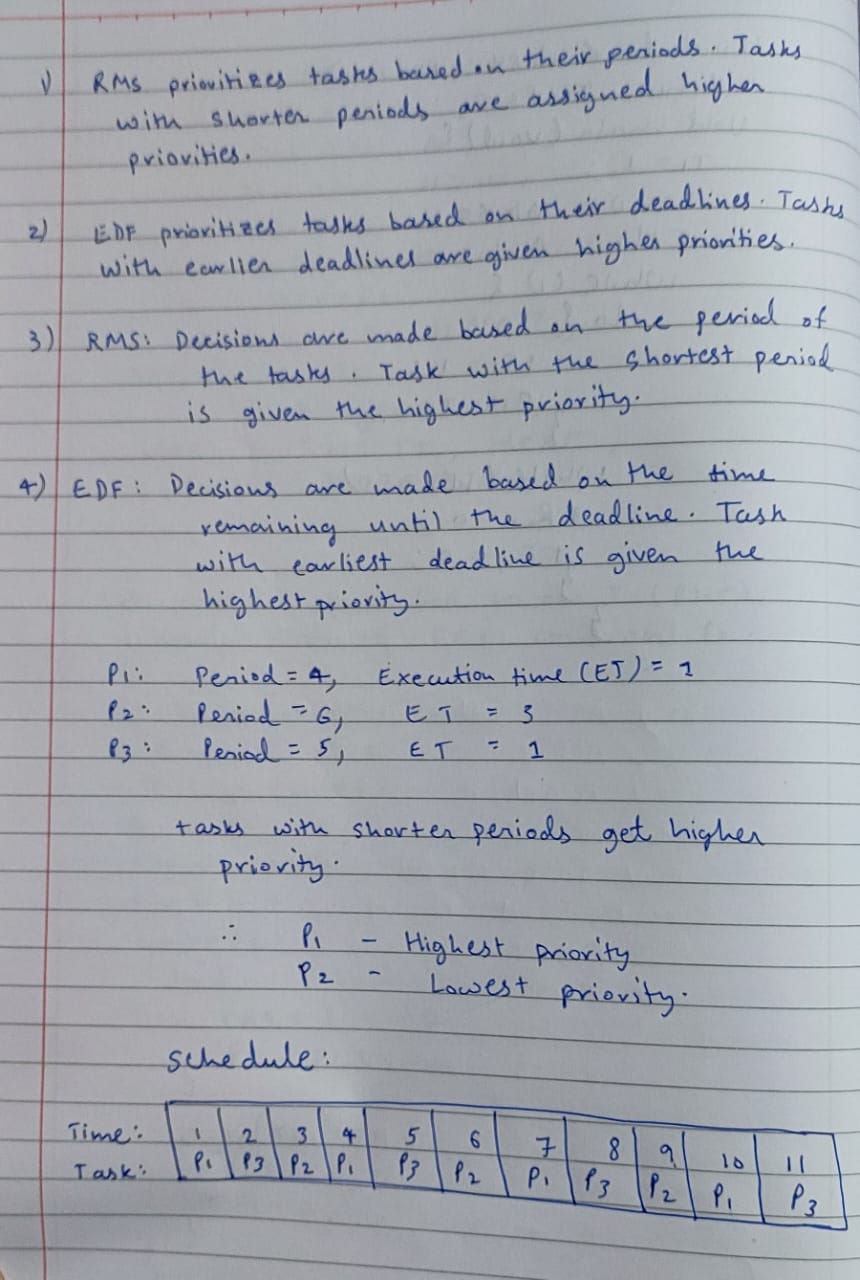 1) RMS prioritizes tasks based on their periods. Tasks
with shorter periods are assigned higher
priorities.
2) EDF prioritizes tasks based on their deadlines. Tasks
with earlier deadlines are given higher priorities.
3) RMS: Decisions are made based on the period of
the tasks. Task with the shortest period
is given the highest priority.
4) EDF: Decisions are made based on the time
remaining until the deadline. Task
with earliest deadline is given the
highest priority.
P1: Period = 4, Execution time (ET) = 1
P2: Period = 6, ET = 3
P3: Period = 5, ET = 1
tasks with shorter periods get higher
priority.
∴ P1 - Highest priority
P2 - Lowest priority.
schedule:
Time: 1 2 3 4 5 6 7 8 9 10 11
Task: P1 P3 P2 P1 P3 P2 P1 P3 P2 P1 P3